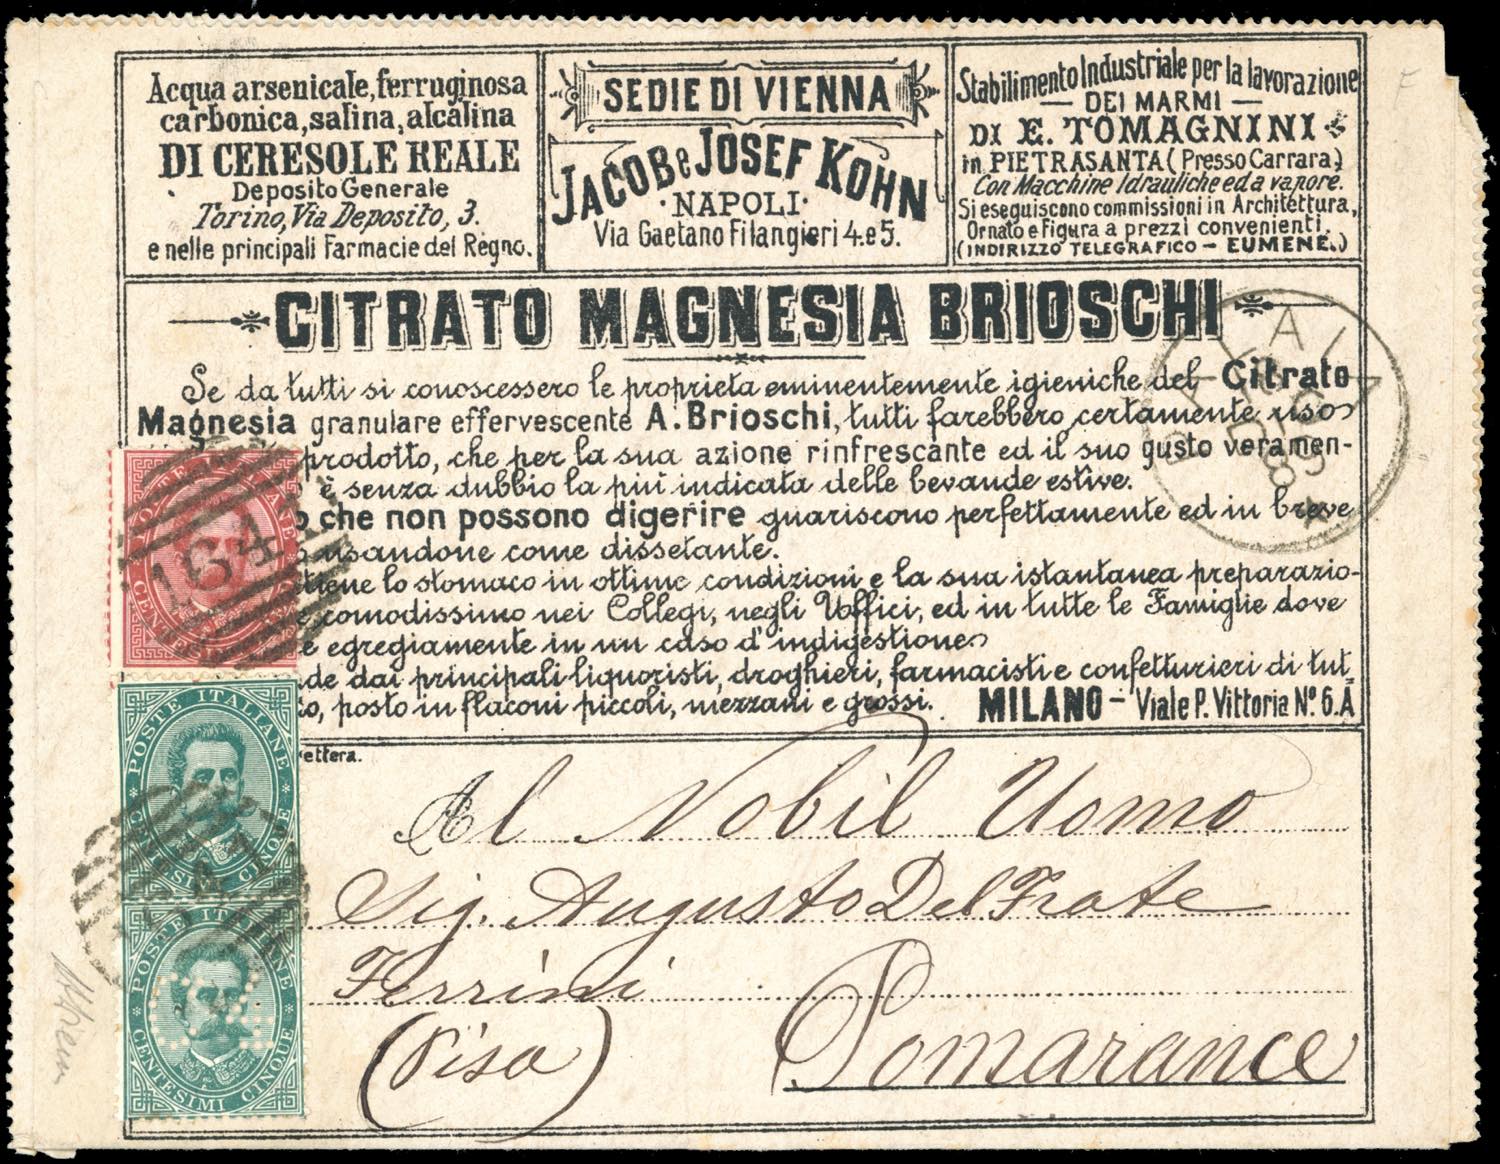 Acqua arsenicale, ferruginosa
carbonica, salina, alcalina
DI CERESOLE REALE
Deposito Generale
Torino, Via Deposito, 3.
e nelle principali Farmacie del Regno.
SEDIE DI VIENNA
JACOB e JOSEF KOHN
· NAPOLI ·
Via Gaetano Filangieri 4. e 5.
Stabilimento Industriale per la lavorazione
— DEI MARMI —
DI E. TOMAGNINI
in PIETRASANTA (Presso Carrara)
Con Macchine Idrauliche ed a vapore.
Si eseguiscono commissioni in Architettura,
Ornato e Figura a prezzi convenienti.
(INDIRIZZO TELEGRAFICO – EUMENE.)
CITRATO MAGNESIA BRIOSCHI
Se da tutti si conoscessero le proprietà eminentemente igieniche del Citrato
Magnesia granulare effervescente A. Brioschi, tutti farebbero certamente uso
prodotto, che per la sua azione rinfrescante ed il suo gusto veramen-
è senza dubbio la più indicata delle bevande estive.
o che non possono digerire guariscono perfettamente ed in breve
usandone come dissetante.
tiene lo stomaco in ottime condizioni e la sua istantanea preparazio-
e comodissimo nei Collegi, negli Uffici, ed in tutte le Famiglie dove
e egregiamente in un caso d'indigestione
de dai principali liquoristi, droghieri, farmacisti e confetturieri di tut-
o, posto in flaconi piccoli, mezzani e grossi. MILANO – Viale P. Vittoria N.º 6. A
ettera.
Al Nobil Uomo
Sig. Augusto Del Frate
Ferrini
(Pisa) Pomarance
POSTE ITALIANE
CENT
164
POSTE ITALIANE
CENTESIMI CINQUE
POSTE ITALIANE
CENTESIMI CINQUE